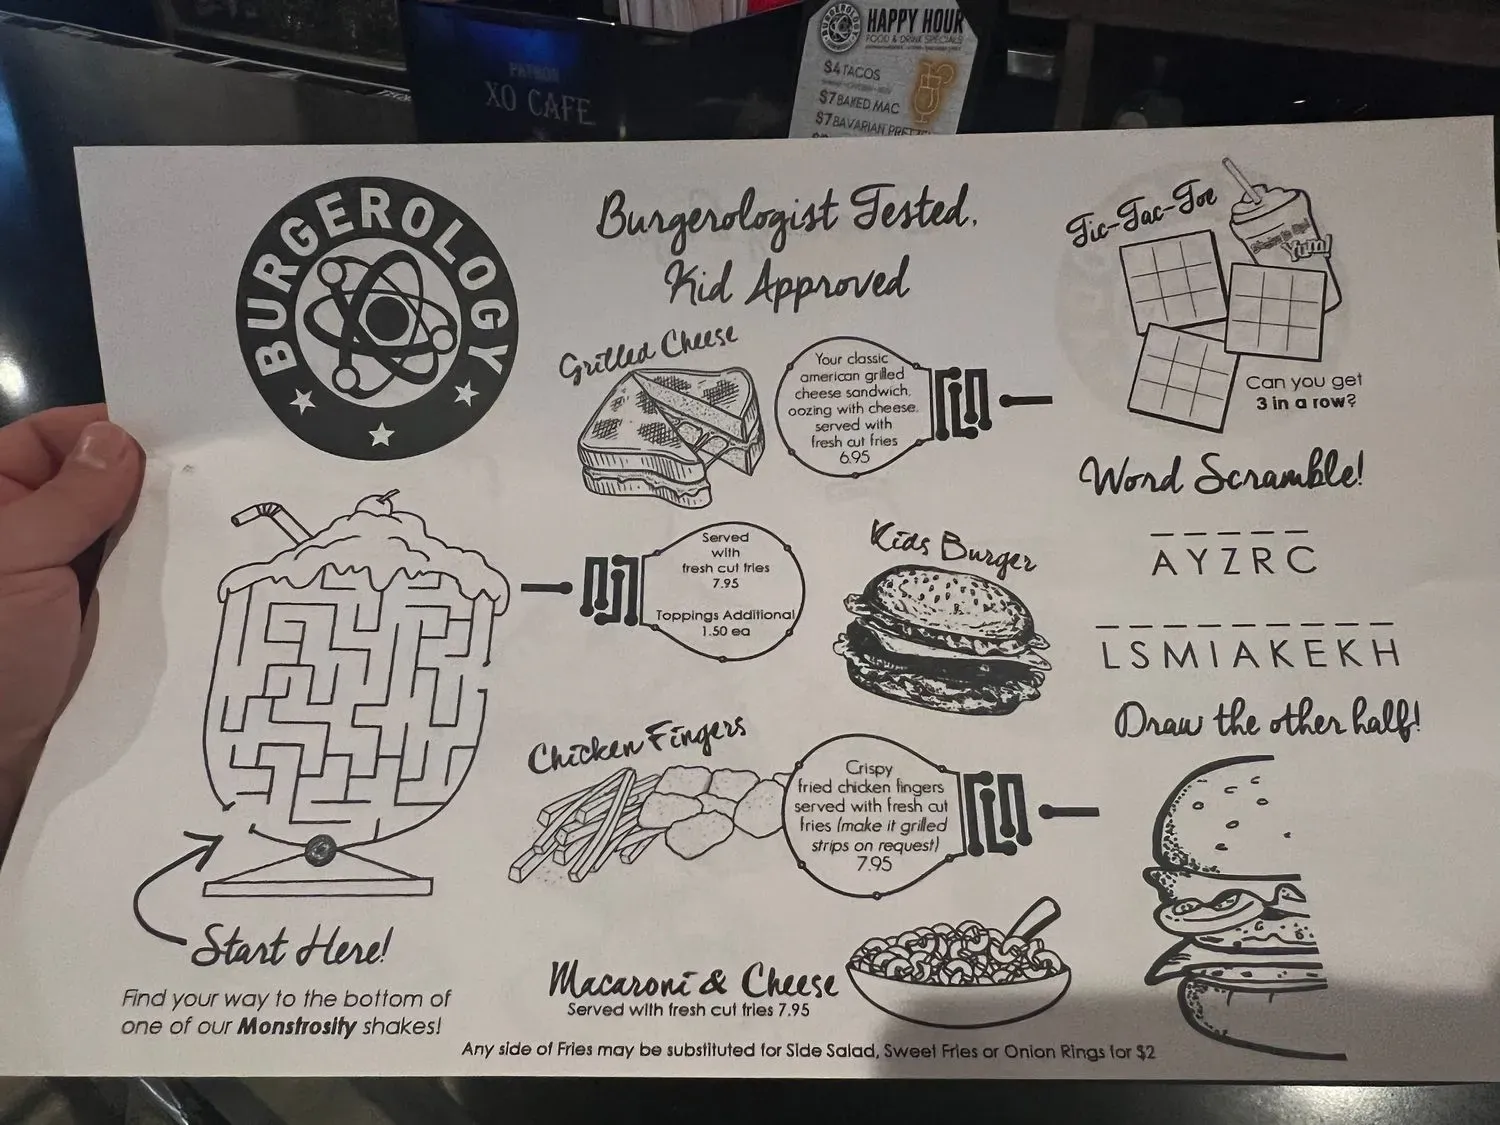 PATRON
XO CAFE
BURGEROLOGY
HAPPY HOUR
FOOD & DRINK SPECIALS
$4 TACOS
$7 BAKED MAC
$7 BAVARIAN
BURGEROLOGY
Burgerologist Tested,
Kid Approved
Grilled Cheese
Your classic
american grilled
cheese sandwich,
oozing with cheese,
served with
fresh cut fries
6.95
Served
with
fresh cut fries
7.95
Toppings Additional
1.50 ea
Kids Burger
Chicken Fingers
Crispy
fried chicken fingers
served with fresh cut
fries (make it grilled
strips on request)
7.95
Macaroni & Cheese
Served with fresh cut fries 7.95
Any side of Fries may be substituted for Side Salad, Sweet Fries or Onion Rings for $2
Start Here!
Find your way to the bottom of
one of our Monstrosity shakes!
Tic-Tac-Toe
Yum!
Can you get
3 in a row?
Word Scramble!
AYZRC
LSMIAKEKH
Draw the other half!